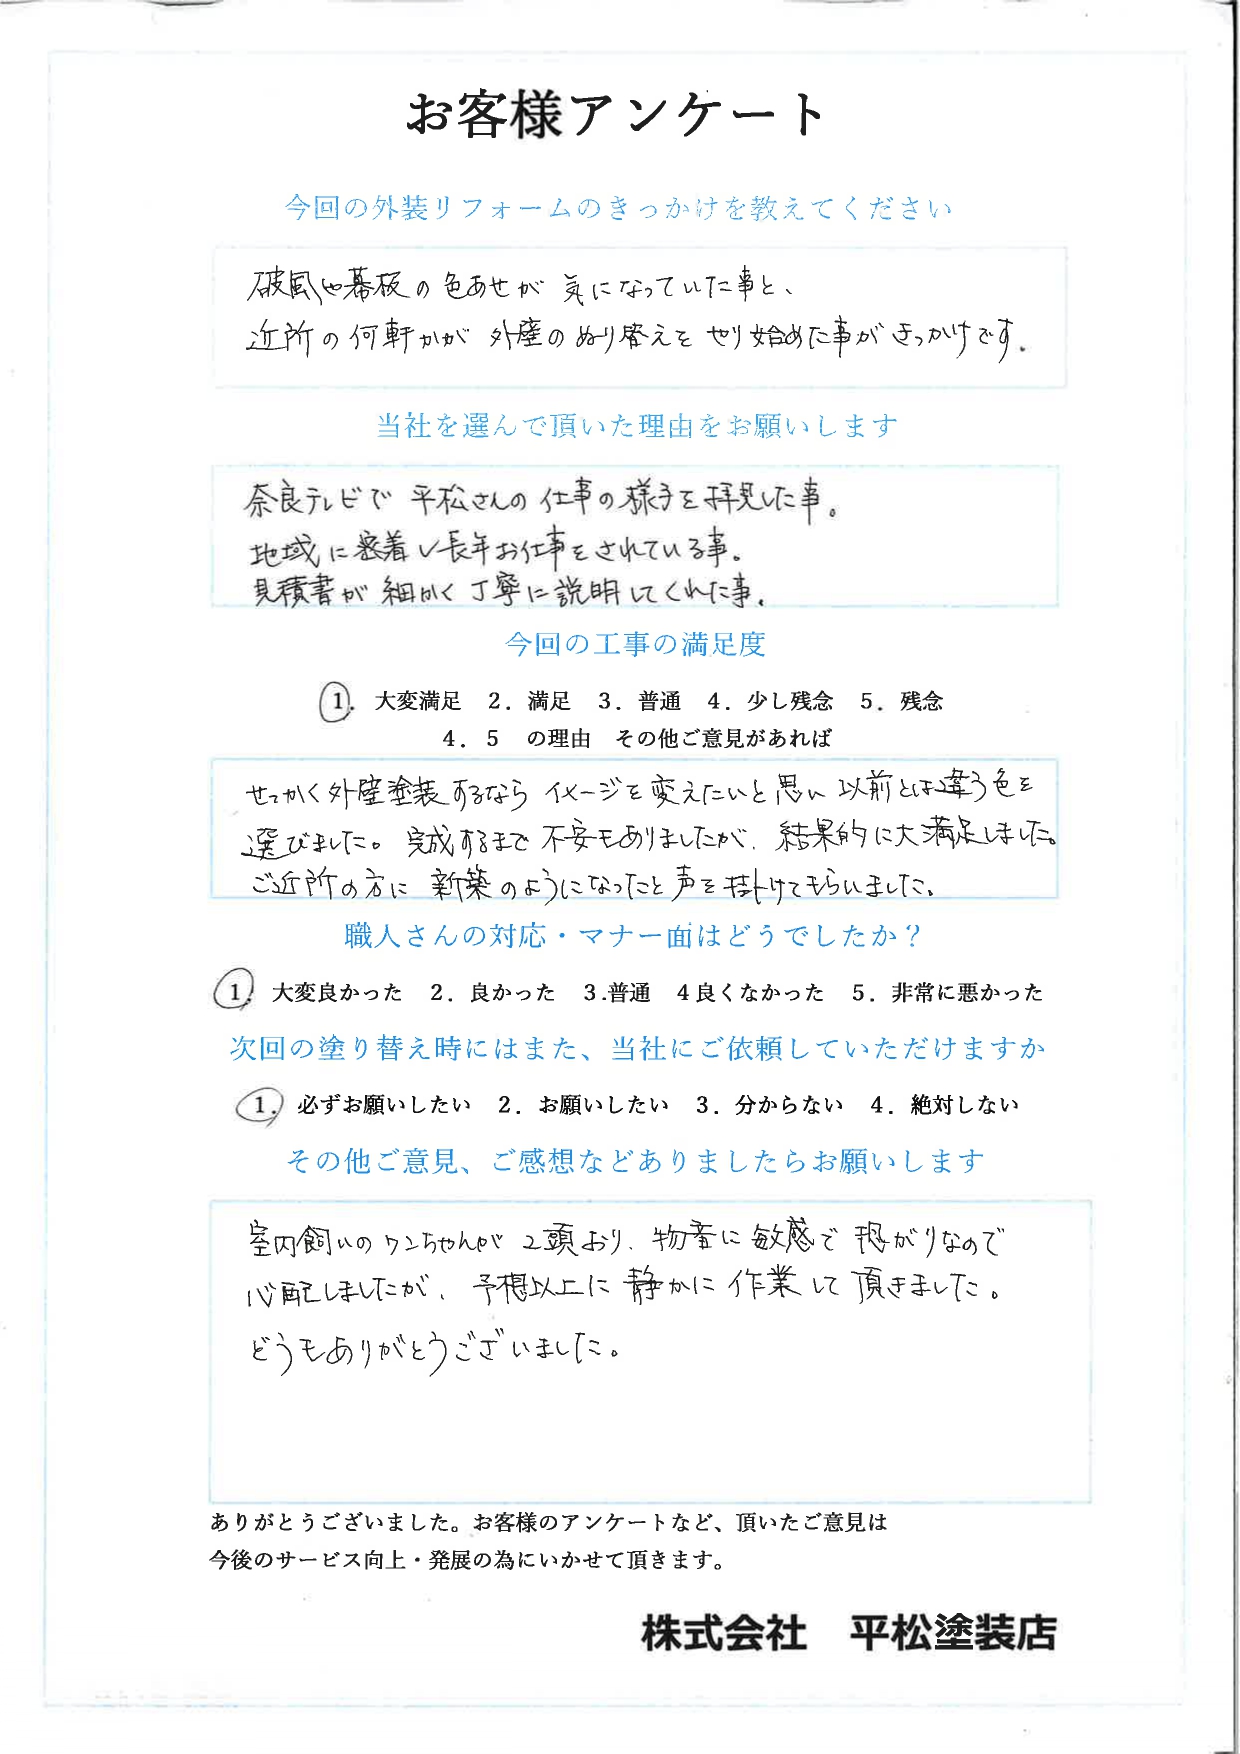 お客様アンケート
今回の外装リフォームのきっかけを教えてください
破風や幕板の色あせが気になっていた事と、
近所の何軒かが外壁のぬり替えをやり始めた事がきっかけです.
当社を選んで頂いた理由をお願いします
奈良テレビで平松さんの仕事の様子を拝見した事。
地域に密着し長年お仕事をされている事。
見積書が細かく丁寧に説明してくれた事.
今回の工事の満足度
1. 大変満足 2. 満足 3. 普通 4. 少し残念 5. 残念
4. 5 の理由 その他ご意見があれば
せっかく外壁塗装するなら イメージを変えたいと思い 以前とは違う色を
選びました。完成するまで不安もありましたが、結果的に大満足しました。
ご近所の方に新築のようになったと声を掛けてもらいました.
職人さんの対応・マナー面はどうでしたか？
1. 大変良かった 2. 良かった 3.普通 4良くなかった 5. 非常に悪かった
次回の塗り替え時にはまた、当社にご依頼していただけますか
1. 必ずお願いしたい 2. お願いしたい 3. 分からない 4. 絶対しない
その他ご意見、ご感想などありましたらお願いします
室内飼いのワンちゃんが2頭おり、物音に敏感で恐がりなので
心配しましたが、予想以上に静かに作業して頂きました。
どうもありがとうございました。
ありがとうございました。お客様のアンケートなど、頂いたご意見は
今後のサービス向上・発展の為にいかせて頂きます。
株式会社 平松塗装店